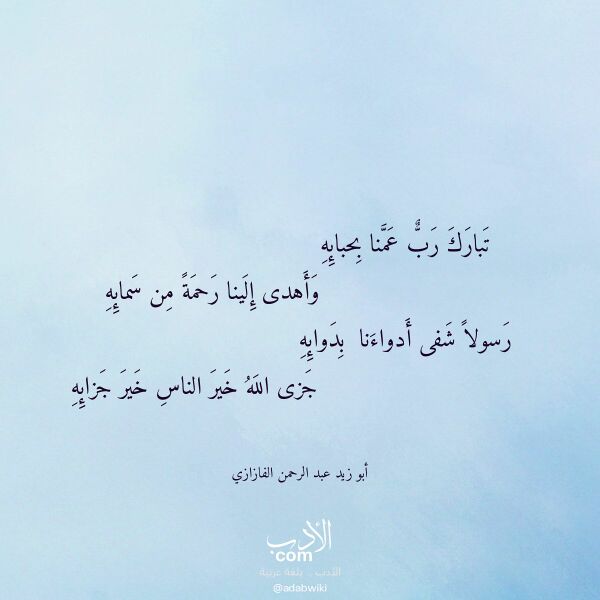 تَبارَكَ رَبٌّ عَمَّنا بِحِبائِهِ
وَأَهدى إِلَينا رَحمَةً مِن سَمائِهِ
رَسولاً شَفى أَدواءَنا بِدَوائِهِ
جَزى اللَهُ خَيرَ الناسِ خَيرَ جَزائِهِ
أبو زيد عبد الرحمن الفازازي
الأدب
com
الأدب .. بلغة عربية
@adabwiki